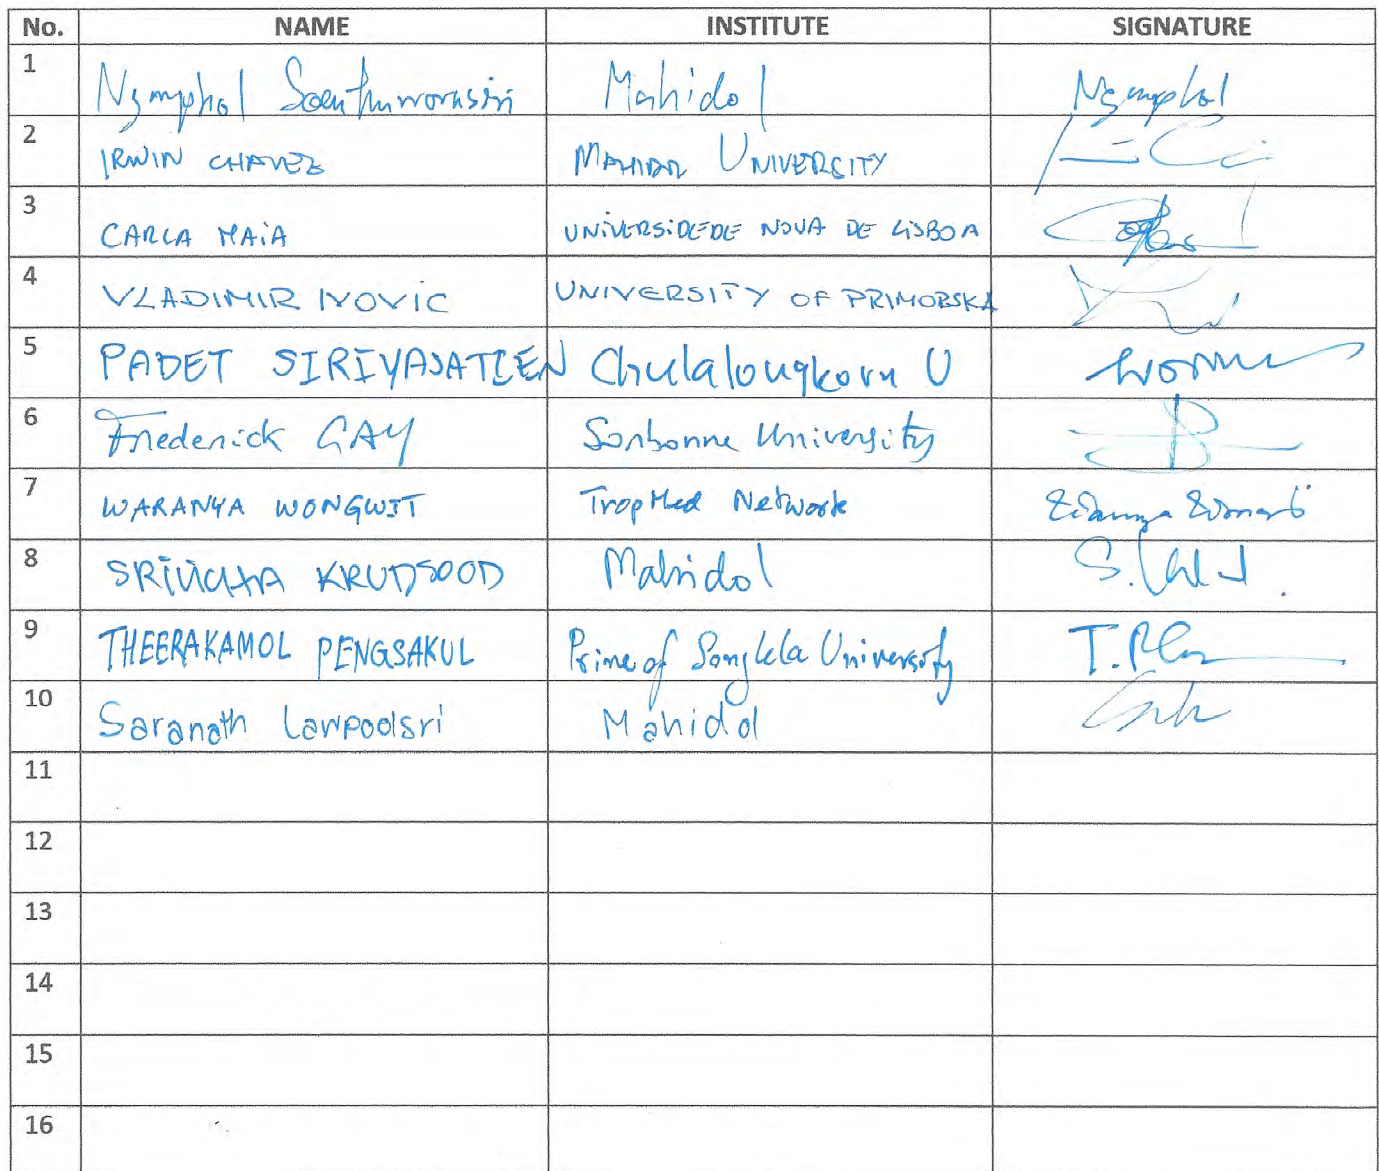 No. NAME INSTITUTE SIGNATURE
1 Ngamphol Soonthornworasiri Mahidol Ngamphol
2 IRWIN CHAVEZ MAHIDOL UNIVERSITY
3 CARLA MAIA UNIVERSIDEDE NOVA DE LISBOA
4 VLADIMIR IVOVIC UNIVERSITY OF PRIMORSKA
5 PADET SIRIYASATIEN Chulalongkorn U
6 Frederick GAY Sorbonne University
7 WARANYA WONGWIT TropMed Network
8 SRIVICHA KRUDSOOD Mahidol
9 THEERAKAMOL PENGSAKUL Prince of Songkla University
10 Saranath Lawpoolsri Mahidol
11
12
13
14
15
16